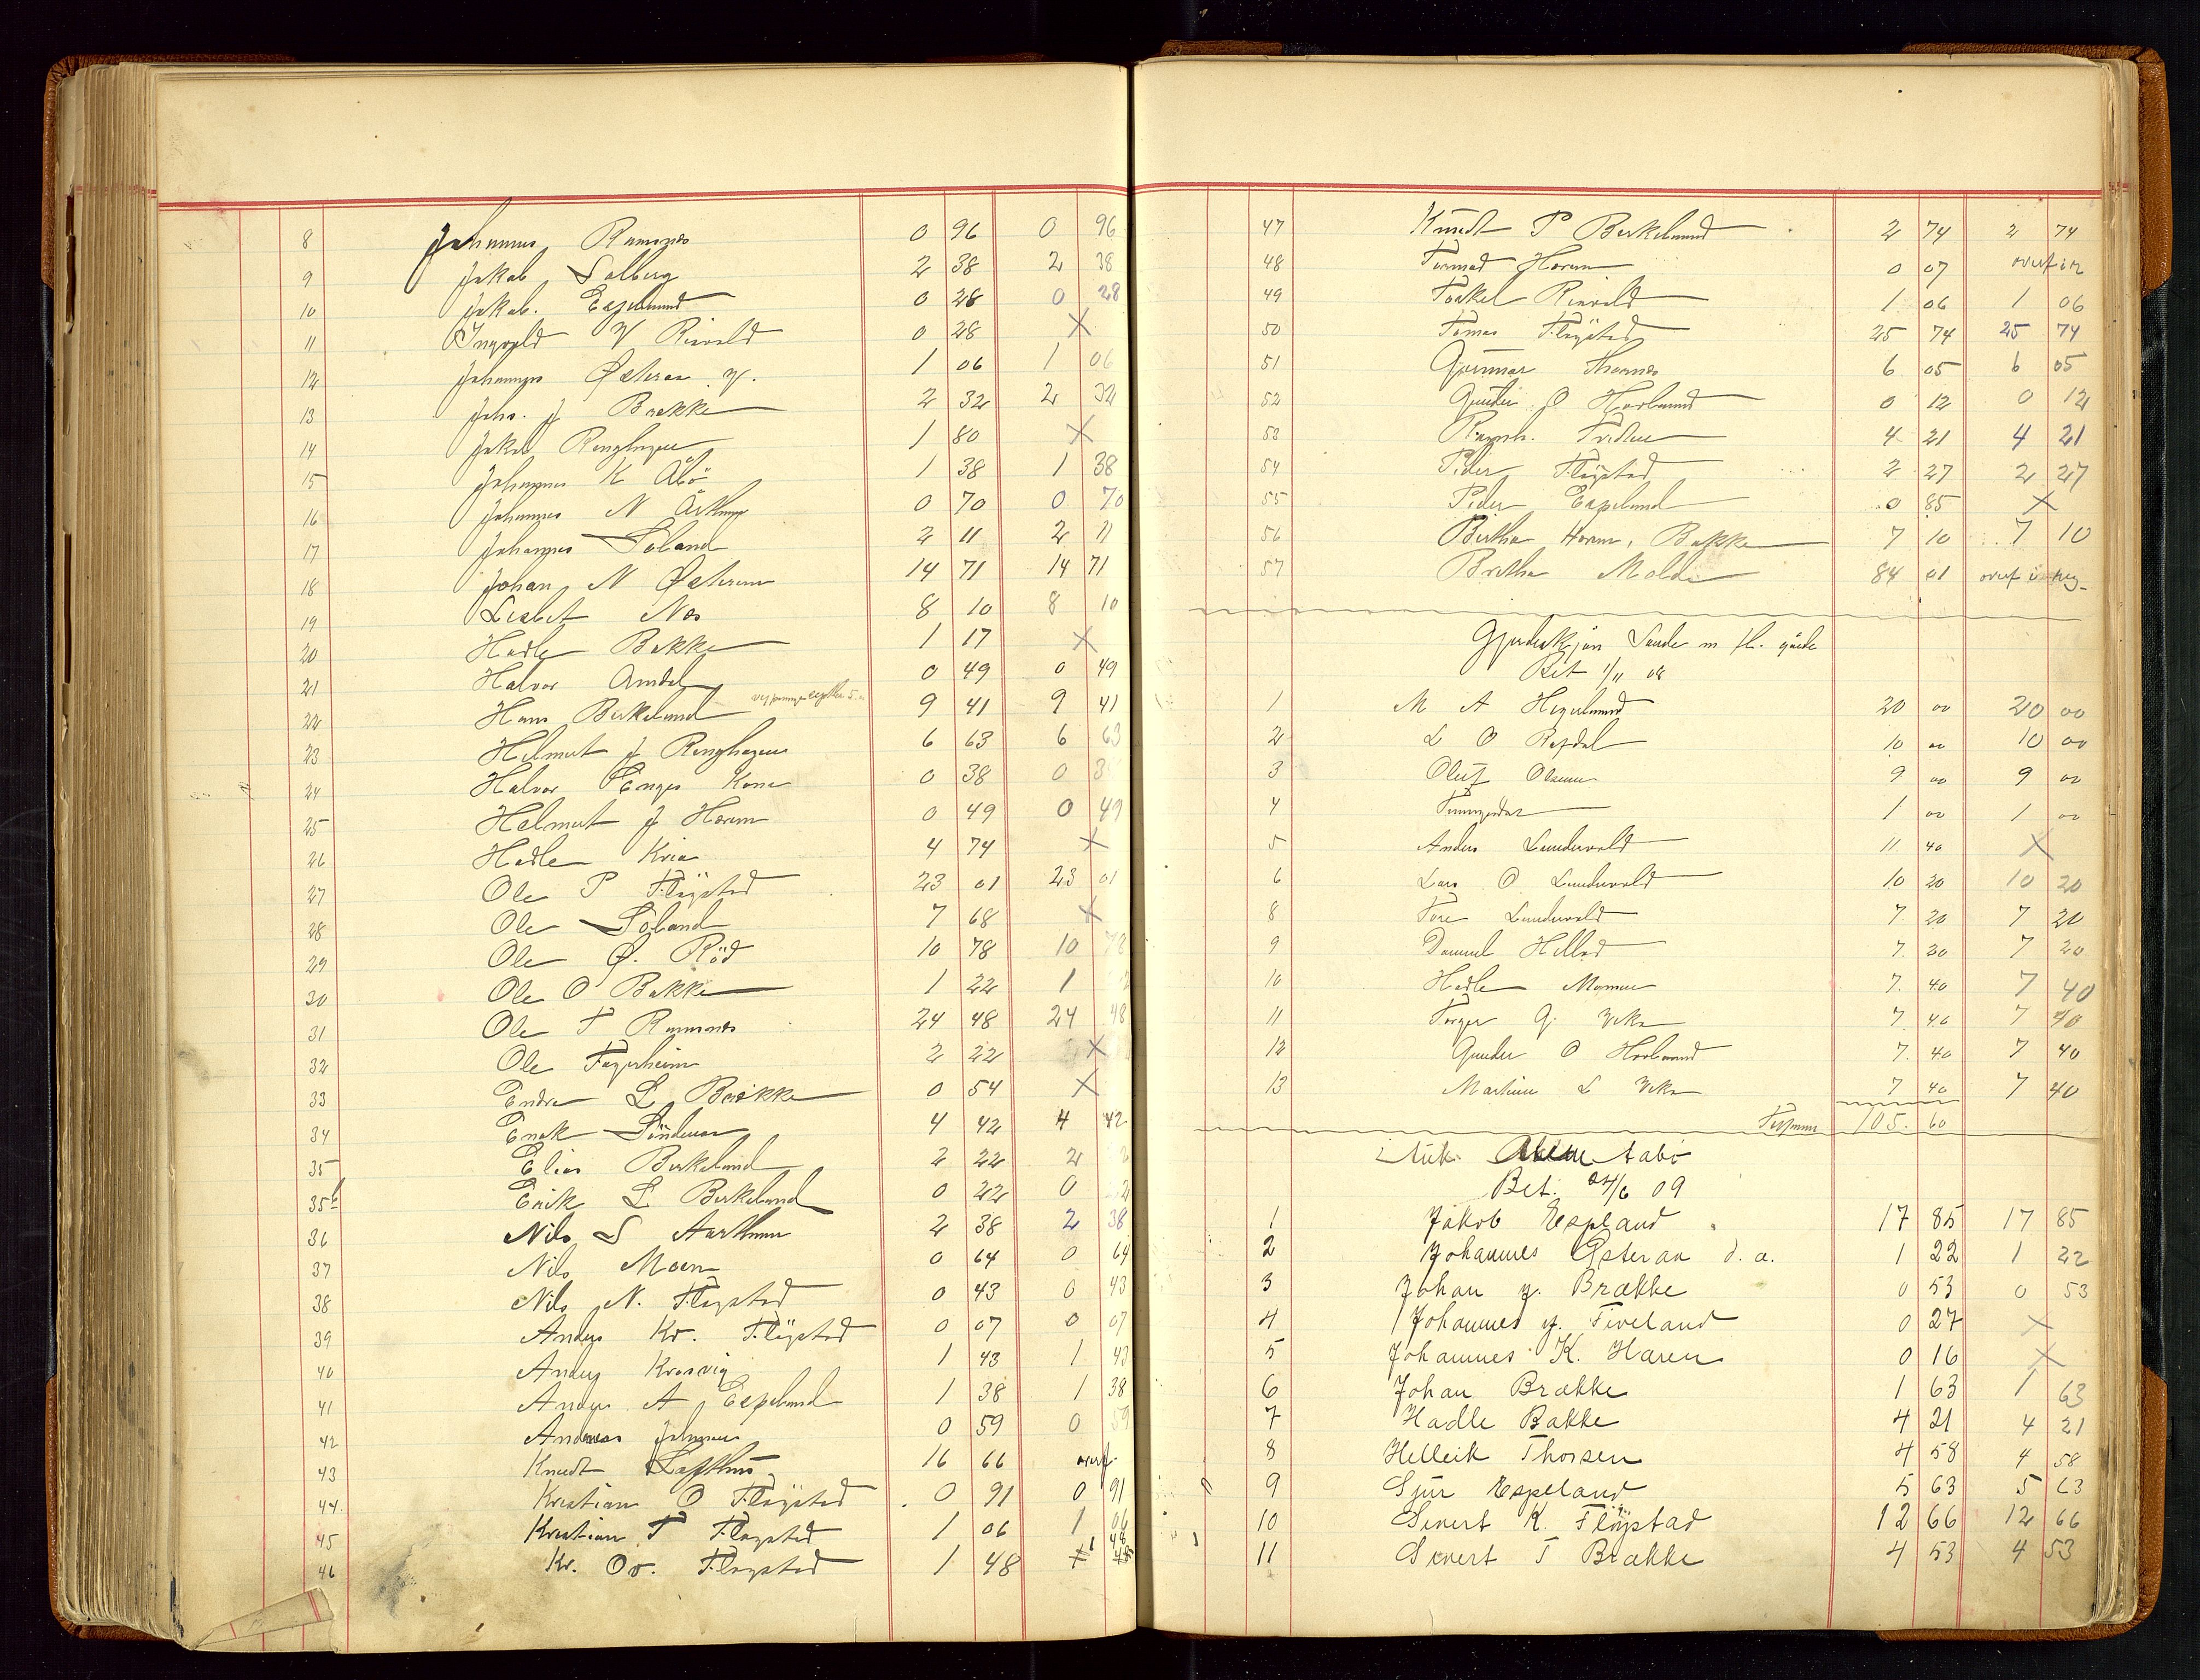 8 Johannes Ramsnes 0 96 0 96
9 Jakob Solberg 2 38 2 38
10 Jakob. Espeland 0 28 0 28
11 Ingvald V Risvold 0 28 X
12 Johannes Østeraa y. 1 06 1 06
13 Johs. J Brække 2 32 2 32
14 Jakob Ringhagen 1 80 X
15 Johannes K Åbö 1 38 1 38
16 Johannes N 0 70 0 70
17 Johannes Söland 2 11 2 11
18 Johan N 14 71 14 71
19 Lisbet Næs 8 10 8 10
20 Hadle Bakke 1 17 X
21 Halvor Amdal 0 49 0 49
22 Hans Birkeland 9 41 9 41
23 Helmut J Ringhagen 6 63 6 63
24 Halvor Enges Kone 0 38 0 3
25 Helmut J Haren 0 49 0 49
26 Hadle Kvia 4 74 X
27 Ole P Flöystad 23 01 23 01
28 Ole Söland 7 68 X
29 Ole Ø. Röd 10 78 10 78
30 Ole O Bakke 1 22 1
31 Ole T Ramsnes 24 48 24 48
32 Ole Fagerheim 2 22 X
33 Endre L Brække 0 54 X
34 Enok 4 42 4 42
35 Elias Birkeland 2 22 2
35b Erik L Birkeland 0 22 0
36 Nils S Aarthun 2 38 2 38
37 Nils Moen 0 64 0 64
38 Nils N. Flöystad 0 43 0 43
39 Anders Kr. Flöystad 0 07 0 07
40 Anders 1 43 1 43
41 Anders A Espeland 1 38 1 38
42 Andreas Johnsen 0 59 0 59
43 Knudt Lofthus 16 66 overf.
44 Kristian O Flöystad 0 91 0 91
45 Kristian T Flöystad 1 06 1 06
46 Kr. Ov. Flöystad 1 48 1 48
47 Knudt P Birkeland 2 74 2 74
48 Tormod Haren 0 07
49 Torkel Risvold 1 06 1 06
50 Tomas Flöystad 25 74 25 74
51 Gunnar Thornes 6 05 6 05
52 Gunder O Havland 0 12 0 12
53 4 21 4 21
54 Peder Flöystad 2 27 2 27
55 Peder Espeland 0 85 X
56 Bertha Haren, Bakke 7 10 7 10
57 Bertha Molde 84 01 overf i
Gjerdeskjön Sande m fl. gårde
Bet 1/11 08
1 M A Hegelund 20 00 20 00
2 L O Røfdal 10 00 10 00
3 Oluf Olsen 9 00 9 00
4 1 00 1 00
5 Anders Lundevold 11 40 X
6 Lars O Lundevold 10 20 10 20
8 Tore Lundevold 7 20 7 20
9 Daniel Helled 7 20 7 20
10 Hadle Momen 7. 40 7 40
11 Torger G. Veka 7. 40 7 40
12 Gunder O Havland 7. 40 7 40
13 Martin L Veka 7 40 7 40
105. 60
Auk. Åbö
Bet. 24/6 09
1 Jakob Espland 17 85 17 85
2 Johannes Østeraa d. æ. 1 22 1 22
3 Johan J. Brække 0 53 0 53
4 Johannes J. Tveland 0 27 X
5 Johannes K. Haren 0 16 X
6 Johan Brække 1 63 1 63
7 Hadle Bakke 4 21 4 21
8 Helleik Thorsen 4 58 4 58
9 Sjur Espeland 5 63 5 63
10 Sivert K. Flöystad 12 66 12 66
11 Sivert T Brække 4 53 4 53